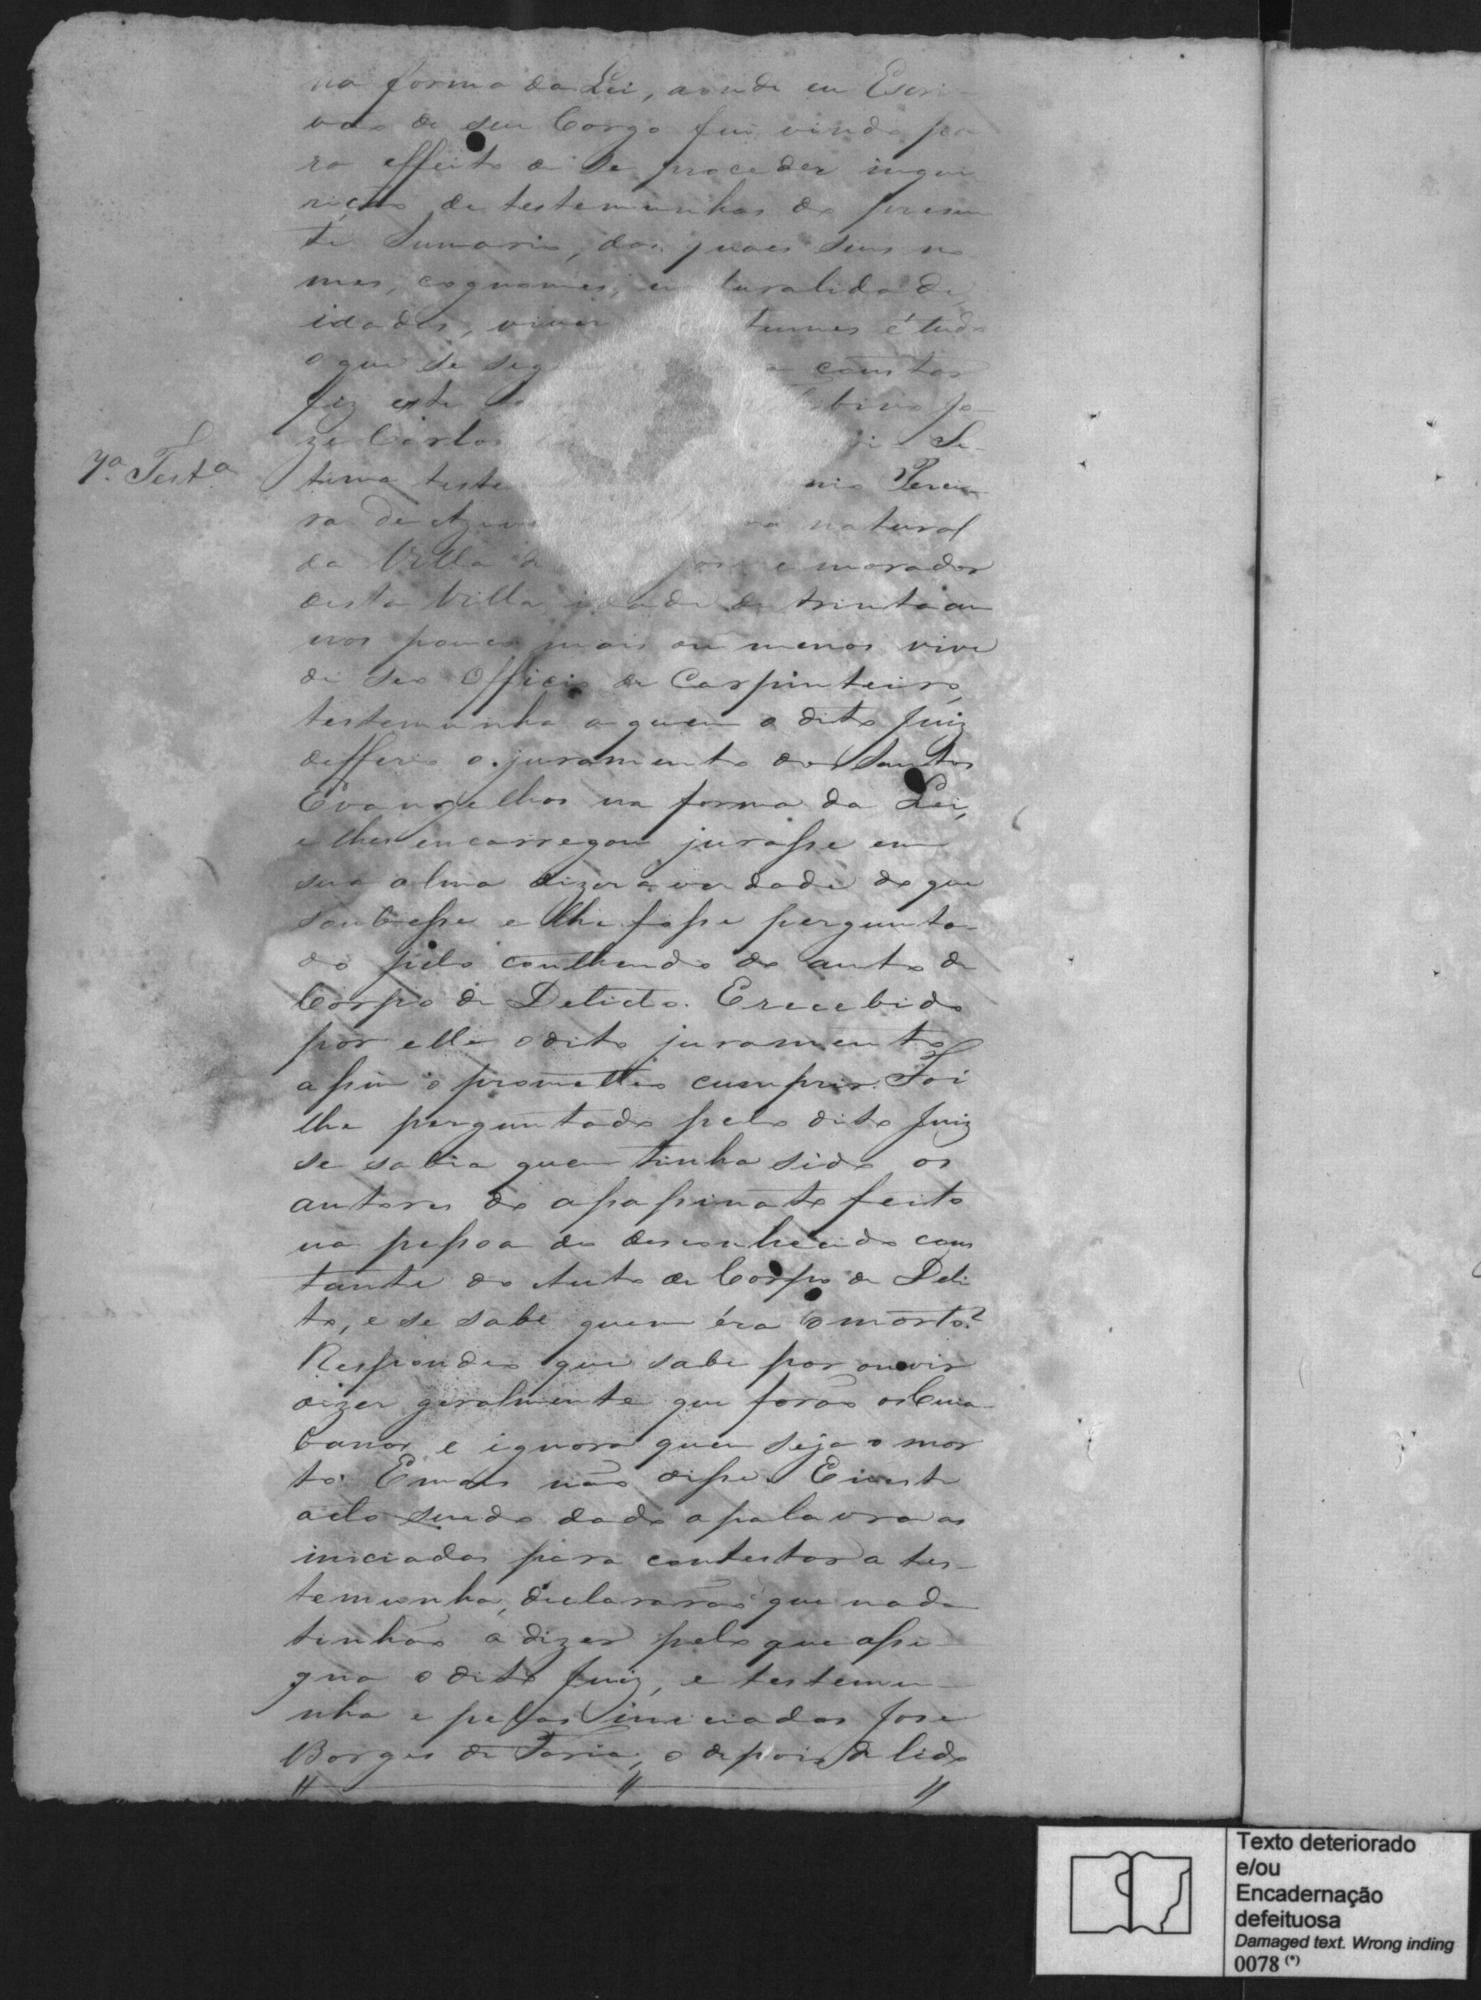 na forma da Lei, aonde eu Escri-
vão de seu Cargo fui vindo pa
ra effeito de se proceder inqui
rição de testemunhas do presen
te Sumario, dos quaes seus no
mes, cognomes, turalidade,
idades, tumes é tudo
o que se seg constar
fiz este Jo-
ze Carlos Se-
7.ª Test.ª
tima teste nio Perei-
ra de natural
da Villa de e morador
desta Villa idade de trinta an
nos pouco mais ou menos vive
de seo Officio de Carpinteiro,
testemunha a quem o dito Juiz
defferio o juramento dos Santos
Evangelhos na forma da Lei,
e lhes encarregou jurasse em
sua alma dizer a verdade do que
soubesse e lhe fosse pergunta-
do pelo contheudo do auto de
Corpo de Delicto. E recebido
por elle o dito juramento
assim o prometteo cumprir. Foi
lhe perguntado pelo dito Juiz
se sabia quem tinha sido os
autores do assassinato feito
na pessoa do desconhecido cons
tante do Auto de Corpo de Deli
to, e se sabe quem éra o morto?
Respondeo que sabe por ouvir
dizer geralmente que forão os
banos, e ignora quem seja o mor
to. E mais não disse. E neste
acto sendo dado a palavra as
iniciadas para contestar a tes-
temunha, declararão que nada
tinhão a dizer pelo que assi-
gna o dito Juiz, e testemu-
nha e pelas iniciadas Jose
Borges de Faria, o depois de lido
Texto deteriorado
e/ou
Encadernação
defeituosa
Damaged text. Wrong inding
0078 (*)